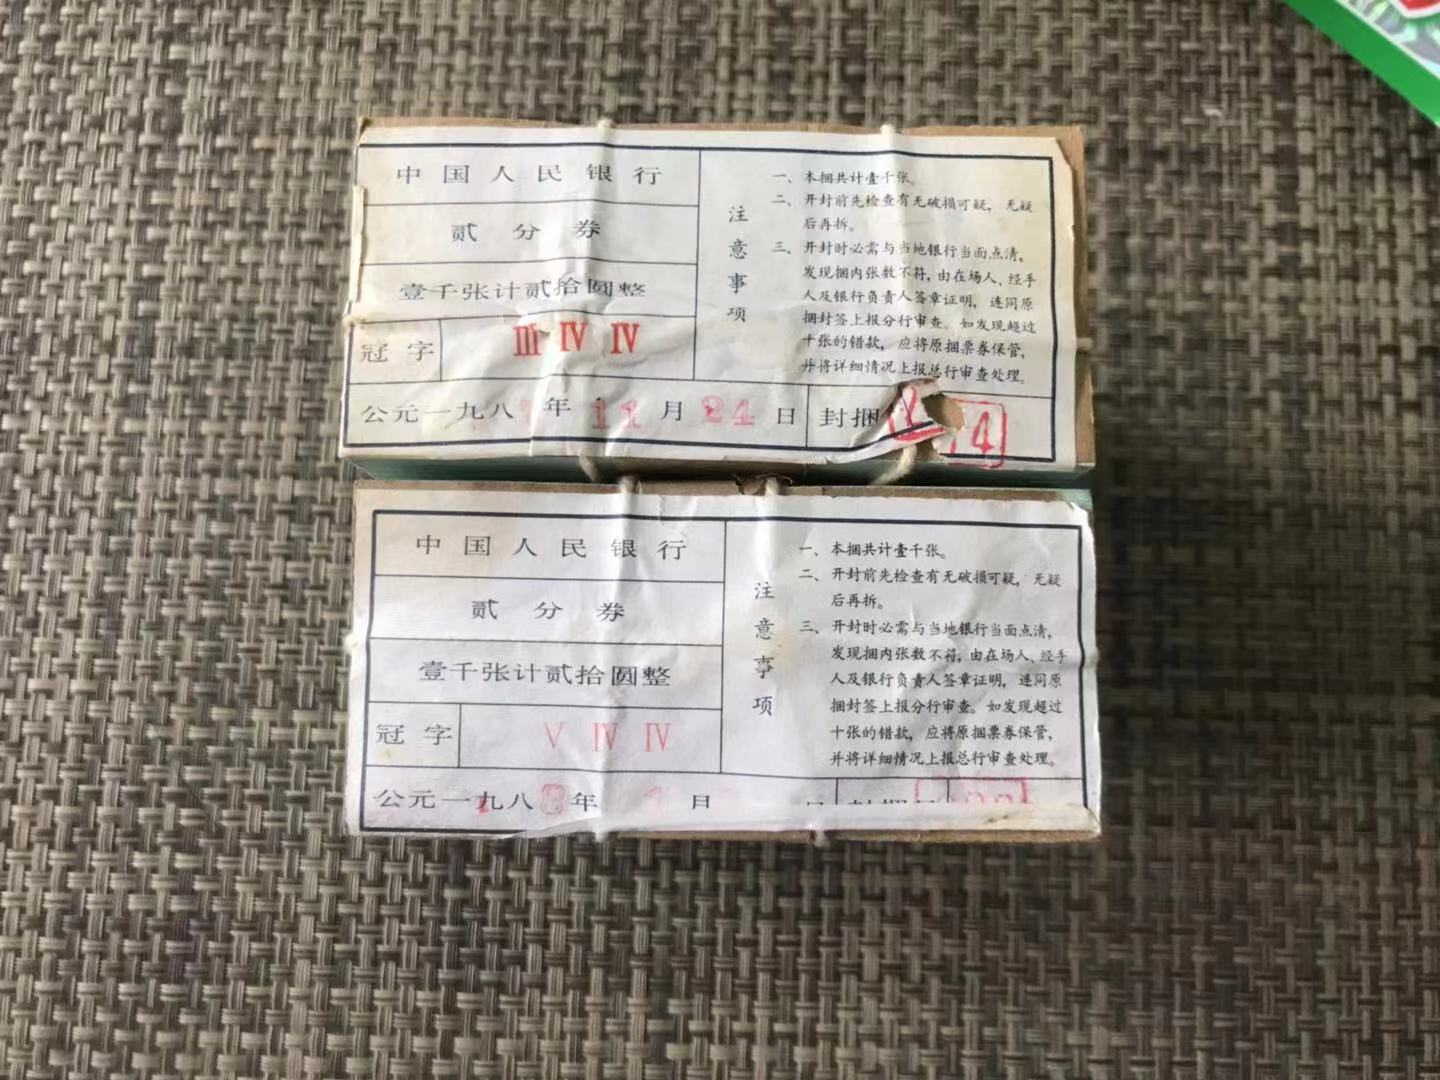 中国人民银行
贰分券
壹千张计贰拾圆整
冠字 Ⅲ Ⅳ Ⅳ
公元一九八 年 11 月 24 日 封捆 4
注意事项
一、本捆共计壹千张。
二、开封前先检查有无破损可疑，无疑
后再拆。
三、开封时必需与当地银行当面点清，
发现捆内张数不符，由在场人、经手
人及银行负责人签章证明，连同原
捆封签上报分行审查。如发现超过
十张的错款，应将原捆票券保管，
并将详细情况上报总行审查处理。
中国人民银行
贰分券
壹千张计贰拾圆整
冠字 Ⅴ Ⅳ Ⅳ
公元一九八8年 月
注意事项
一、本捆共计壹千张。
二、开封前先检查有无破损可疑，无疑
后再拆。
三、开封时必需与当地银行当面点清，
发现捆内张数不符，由在场人、经手
人及银行负责人签章证明，连同原
捆封签上报分行审查。如发现超过
十张的错款，应将原捆票券保管，
并将详细情况上报总行审查处理。